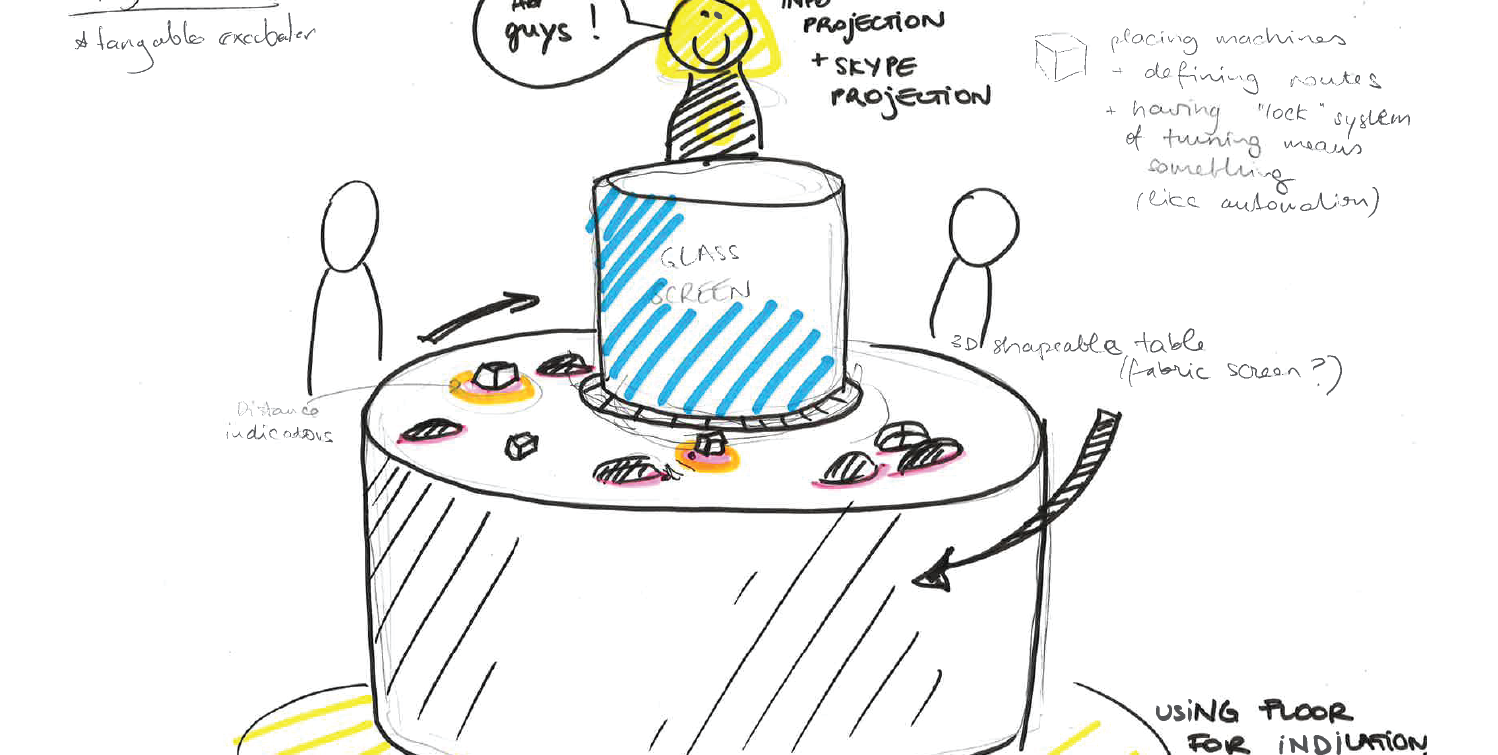 A tangable excabater
guys !
INFO
PROJECTION
+ SKYPE
PROJECTION
placing machines
+ defining routes
+ having "lock" system
of turning means
something
(like automation)
GLASS
SCREEN
3D shapeable table
(fabric screen?)
Distance
indicators
USING FLOOR
FOR INDICATION